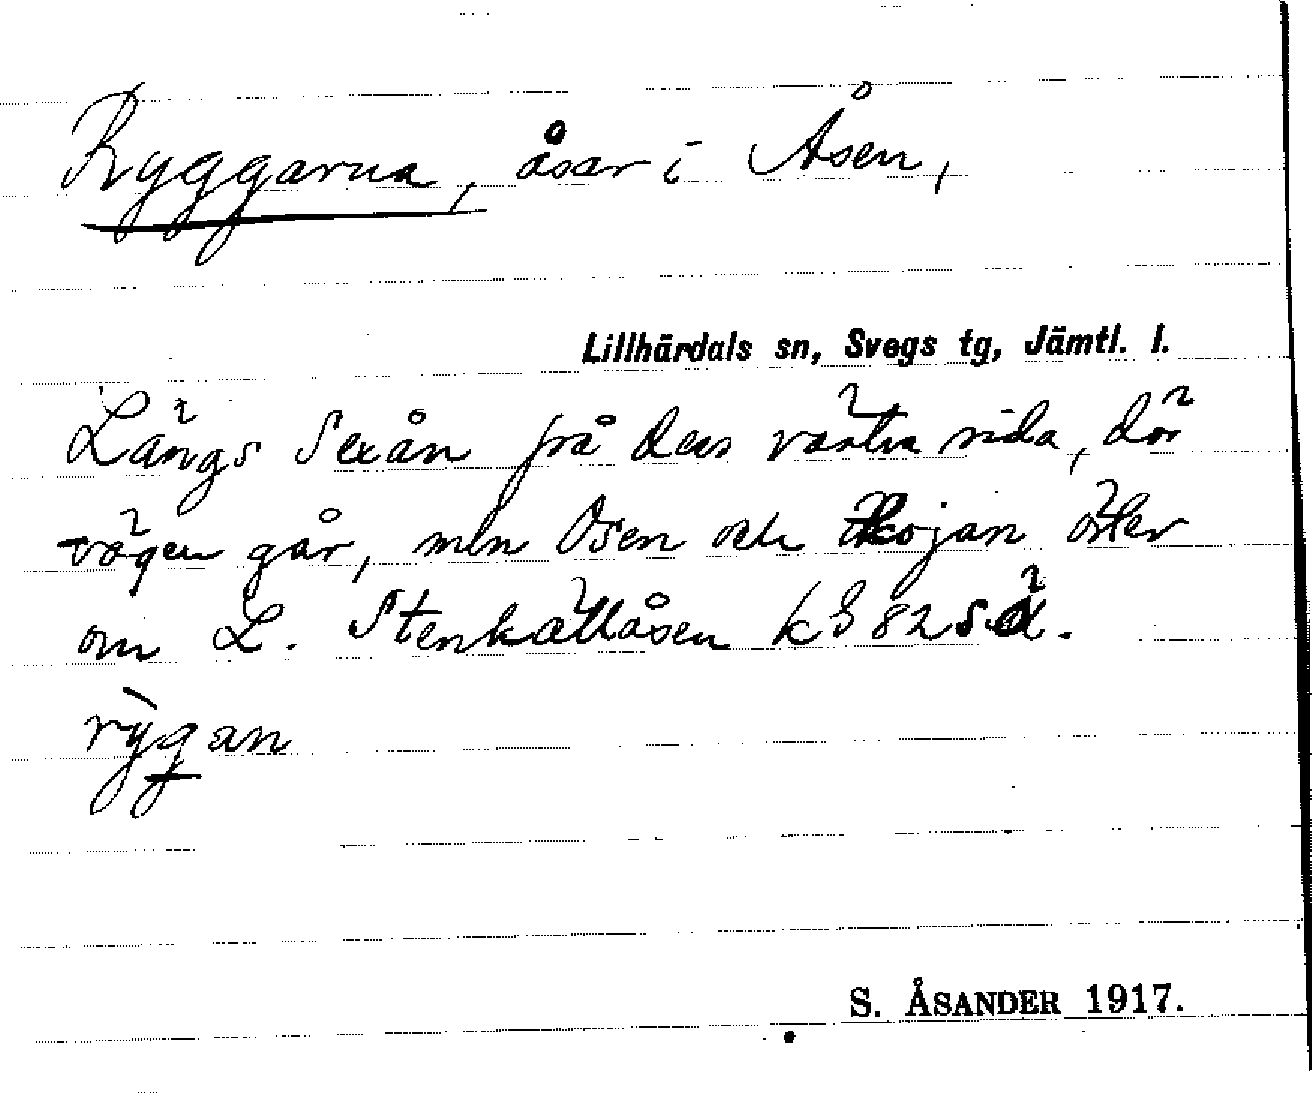 Ryggarna, åsar i Åsen,
Lillhärdals sn, Svegs tg, Jämtl. l.
Längs Sexån på dess västra sida, där
vägen går, mln Osen och kojan öster
om L. Stenkällåsen kE 82 S.d.
rỳgan
S. ÅSANDER 1917.